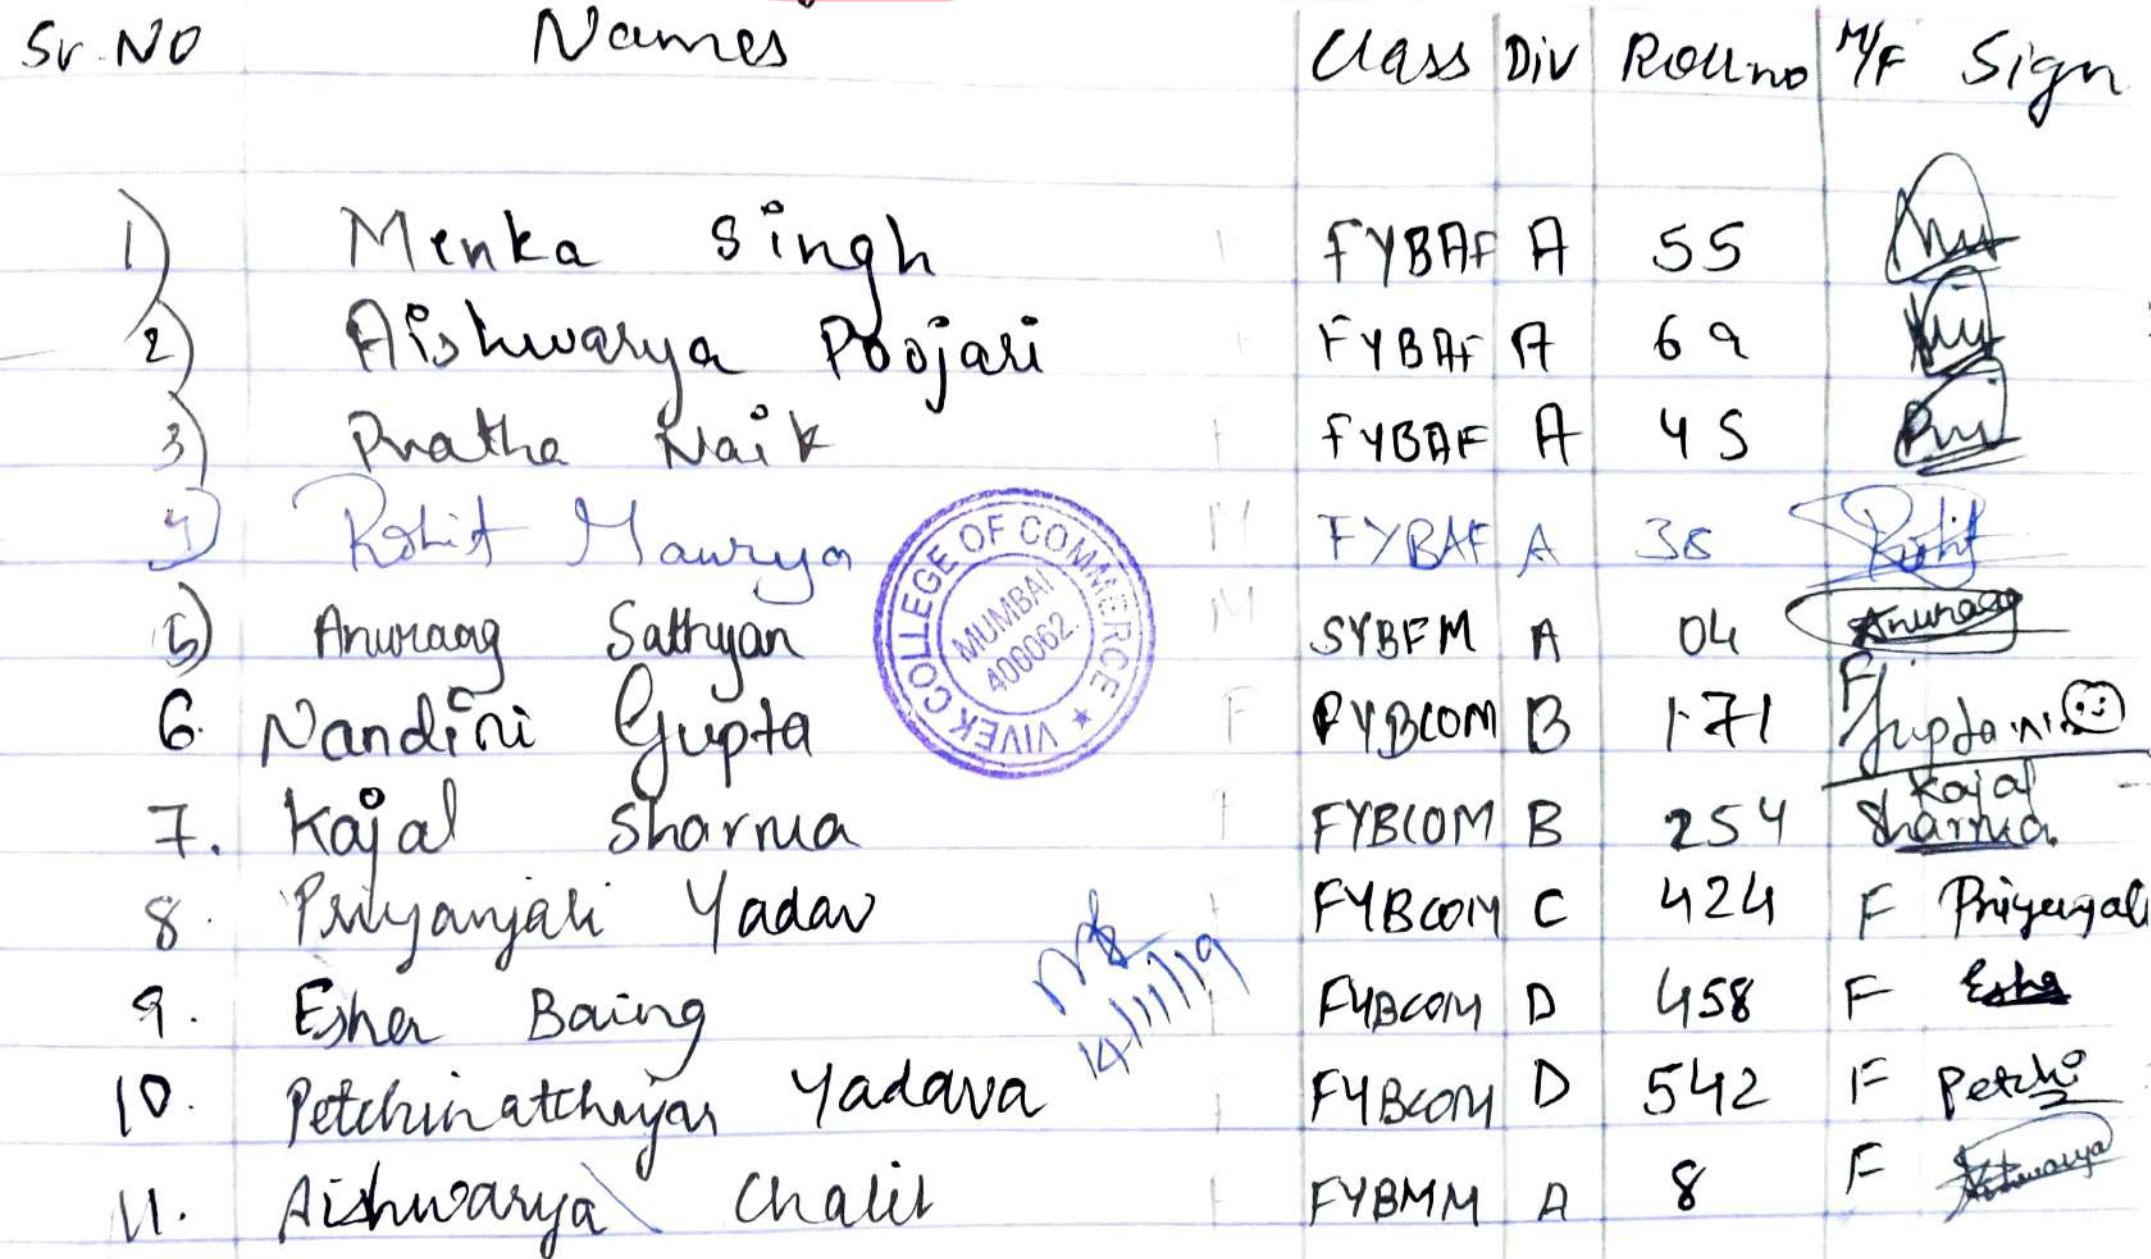 Sr.No Names Class Div Rollno M/F Sign
1) Menka Singh FYBAF A 55
2) Aishwarya Poojari F FYBAF A 69
3) Pratha Naik F FYBAF A 45
4) Rohit Maurya M FYBAF A 38 Rohit
5) Anuraag Sathyan M SYBFM A 04 Anuraag
6. Nandini Gupta F FYBCOM B 171 F Gupta.N.
7. Kajal Sharma F FYBCOM B 254 Kajal Sharma.
8. Priyanjali Yadav F FYBCOM C 424 F Priyanjali
9. Esha Baing F FYBCOM D 458 F Esha
10. Petchinatchiyar Yadava F FYBCOM D 542 F Petchi
11. Aishwarya Chalil F FYBMM A 8 F Aishwarya
VIVEK COLLEGE OF COMMERCE ★
MUMBAI
400062.
14/11/19